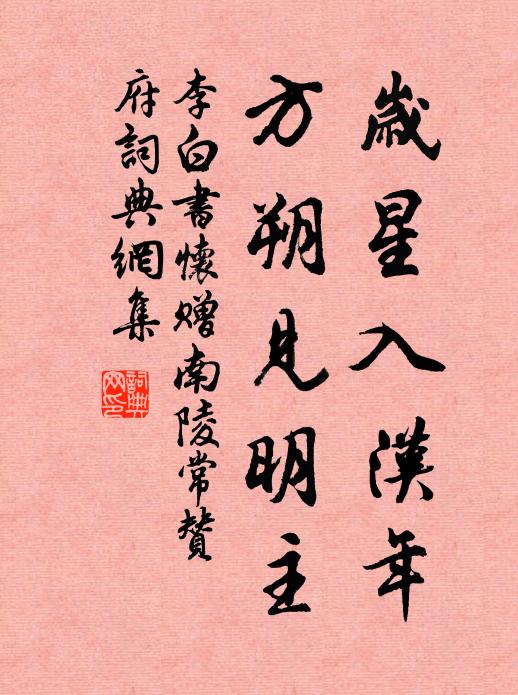 歲星入漢年
方朔見明主
李白書懷贈南陵常贊
府詞典網集
詞典网印